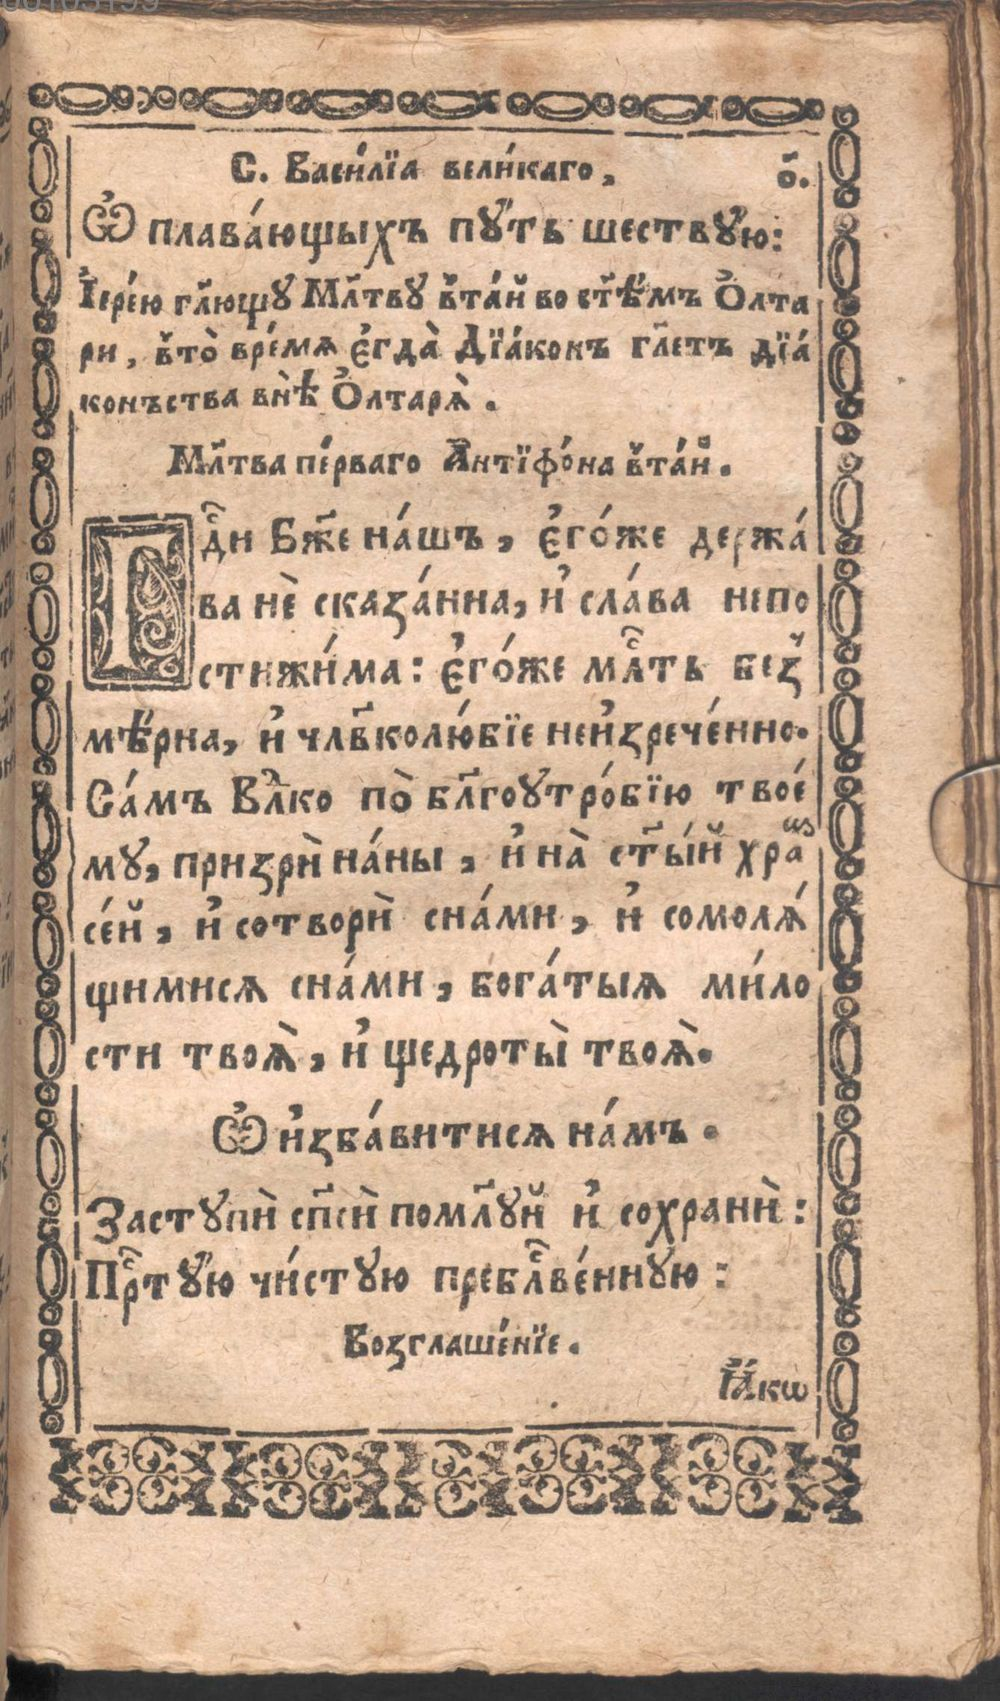 С. Васи́лїа вели́каго,
о҃.
Ѡ҆ плава́ющыхъ пꙋ́ть шествꙋ́ю:
І҆ере́ю гл҃ющꙋ Мл҃твꙋ в̾та́й во ст҃ѣ́мъ О҆лта
ри, в̾то̀ вре́мѧ є҆гда̀ Дїа́конъ гл҃етъ дїа́
конъства внѣ̀ О҆лтарѧ̀.
Мл҃тва пе́рваго А҆нтїфо́на в̾та́й.
Гдⷭ҇и Бж҃е на́шъ, є҆го́же держа́
ва нѐ сказа́нна, и҆ сла́ва непо
стижи́ма: є҆го́же млⷭ҇ть без̾
мѣ́рна, и҆ члв҃колю́бїе неи҆зрече́нно.
Са́мъ Влⷣко по̀ бл҃гоутро́бїю твое́
мꙋ, призрѝ на́ны, и҆ на̀ ст҃ы́й хра́м
се́й, и҆ сотворѝ сна́ми, и҆ сомолѧ́
щимисѧ сна́ми, бога́тыѧ ми́ло
сти твоѧ̀, и҆ щедроты̀ твоѧ̀.
Ѡ҆ и҆зба́витисѧ на́мъ.
Застꙋпѝ сп҃сѝ помл҃ꙋй и҆ сохранѝ:
Прⷭ҇тꙋ́ю чи́стꙋю преблⷭ҇ве́ннꙋю:
Возглаше́нїе.
Ꙗ҆́кѡ